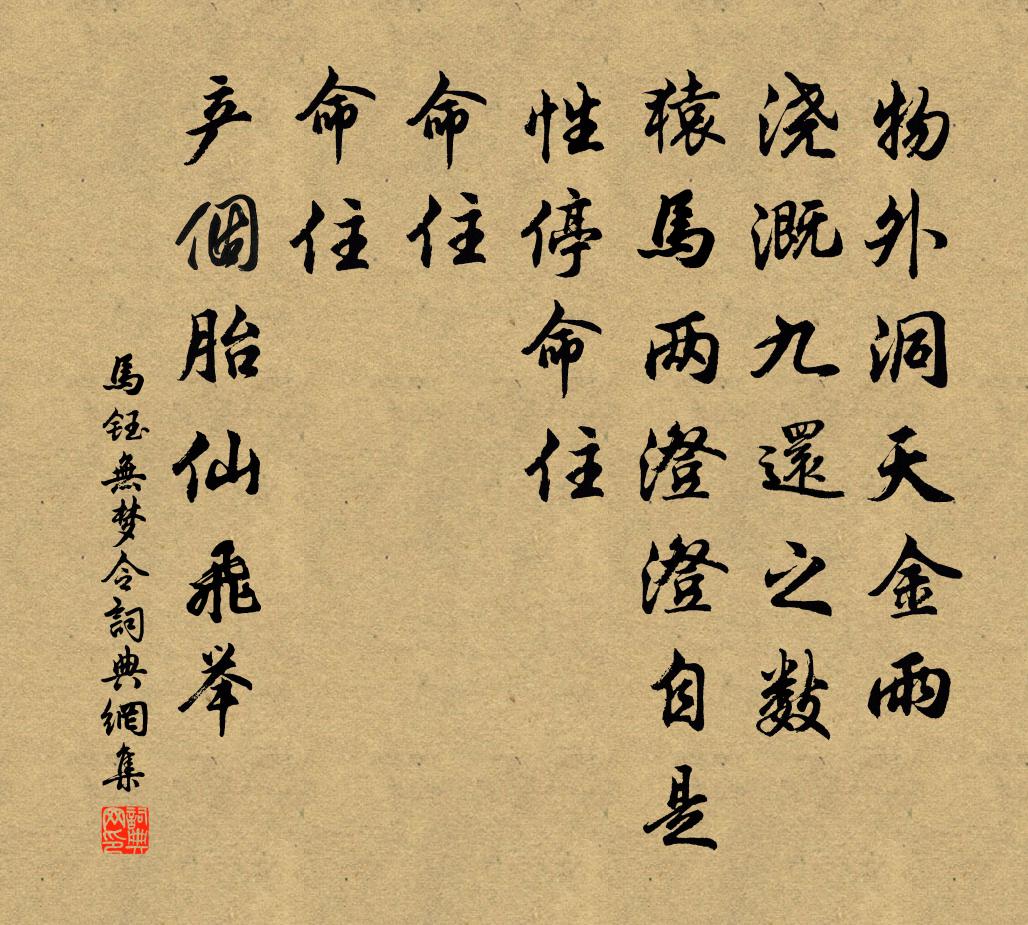 物外洞天金雨
浇溉九還之数
猿馬两澄澄自是
性停命住
命住
命住
产個胎仙飛举
馬鈺無梦令詞典網集
詞典网印